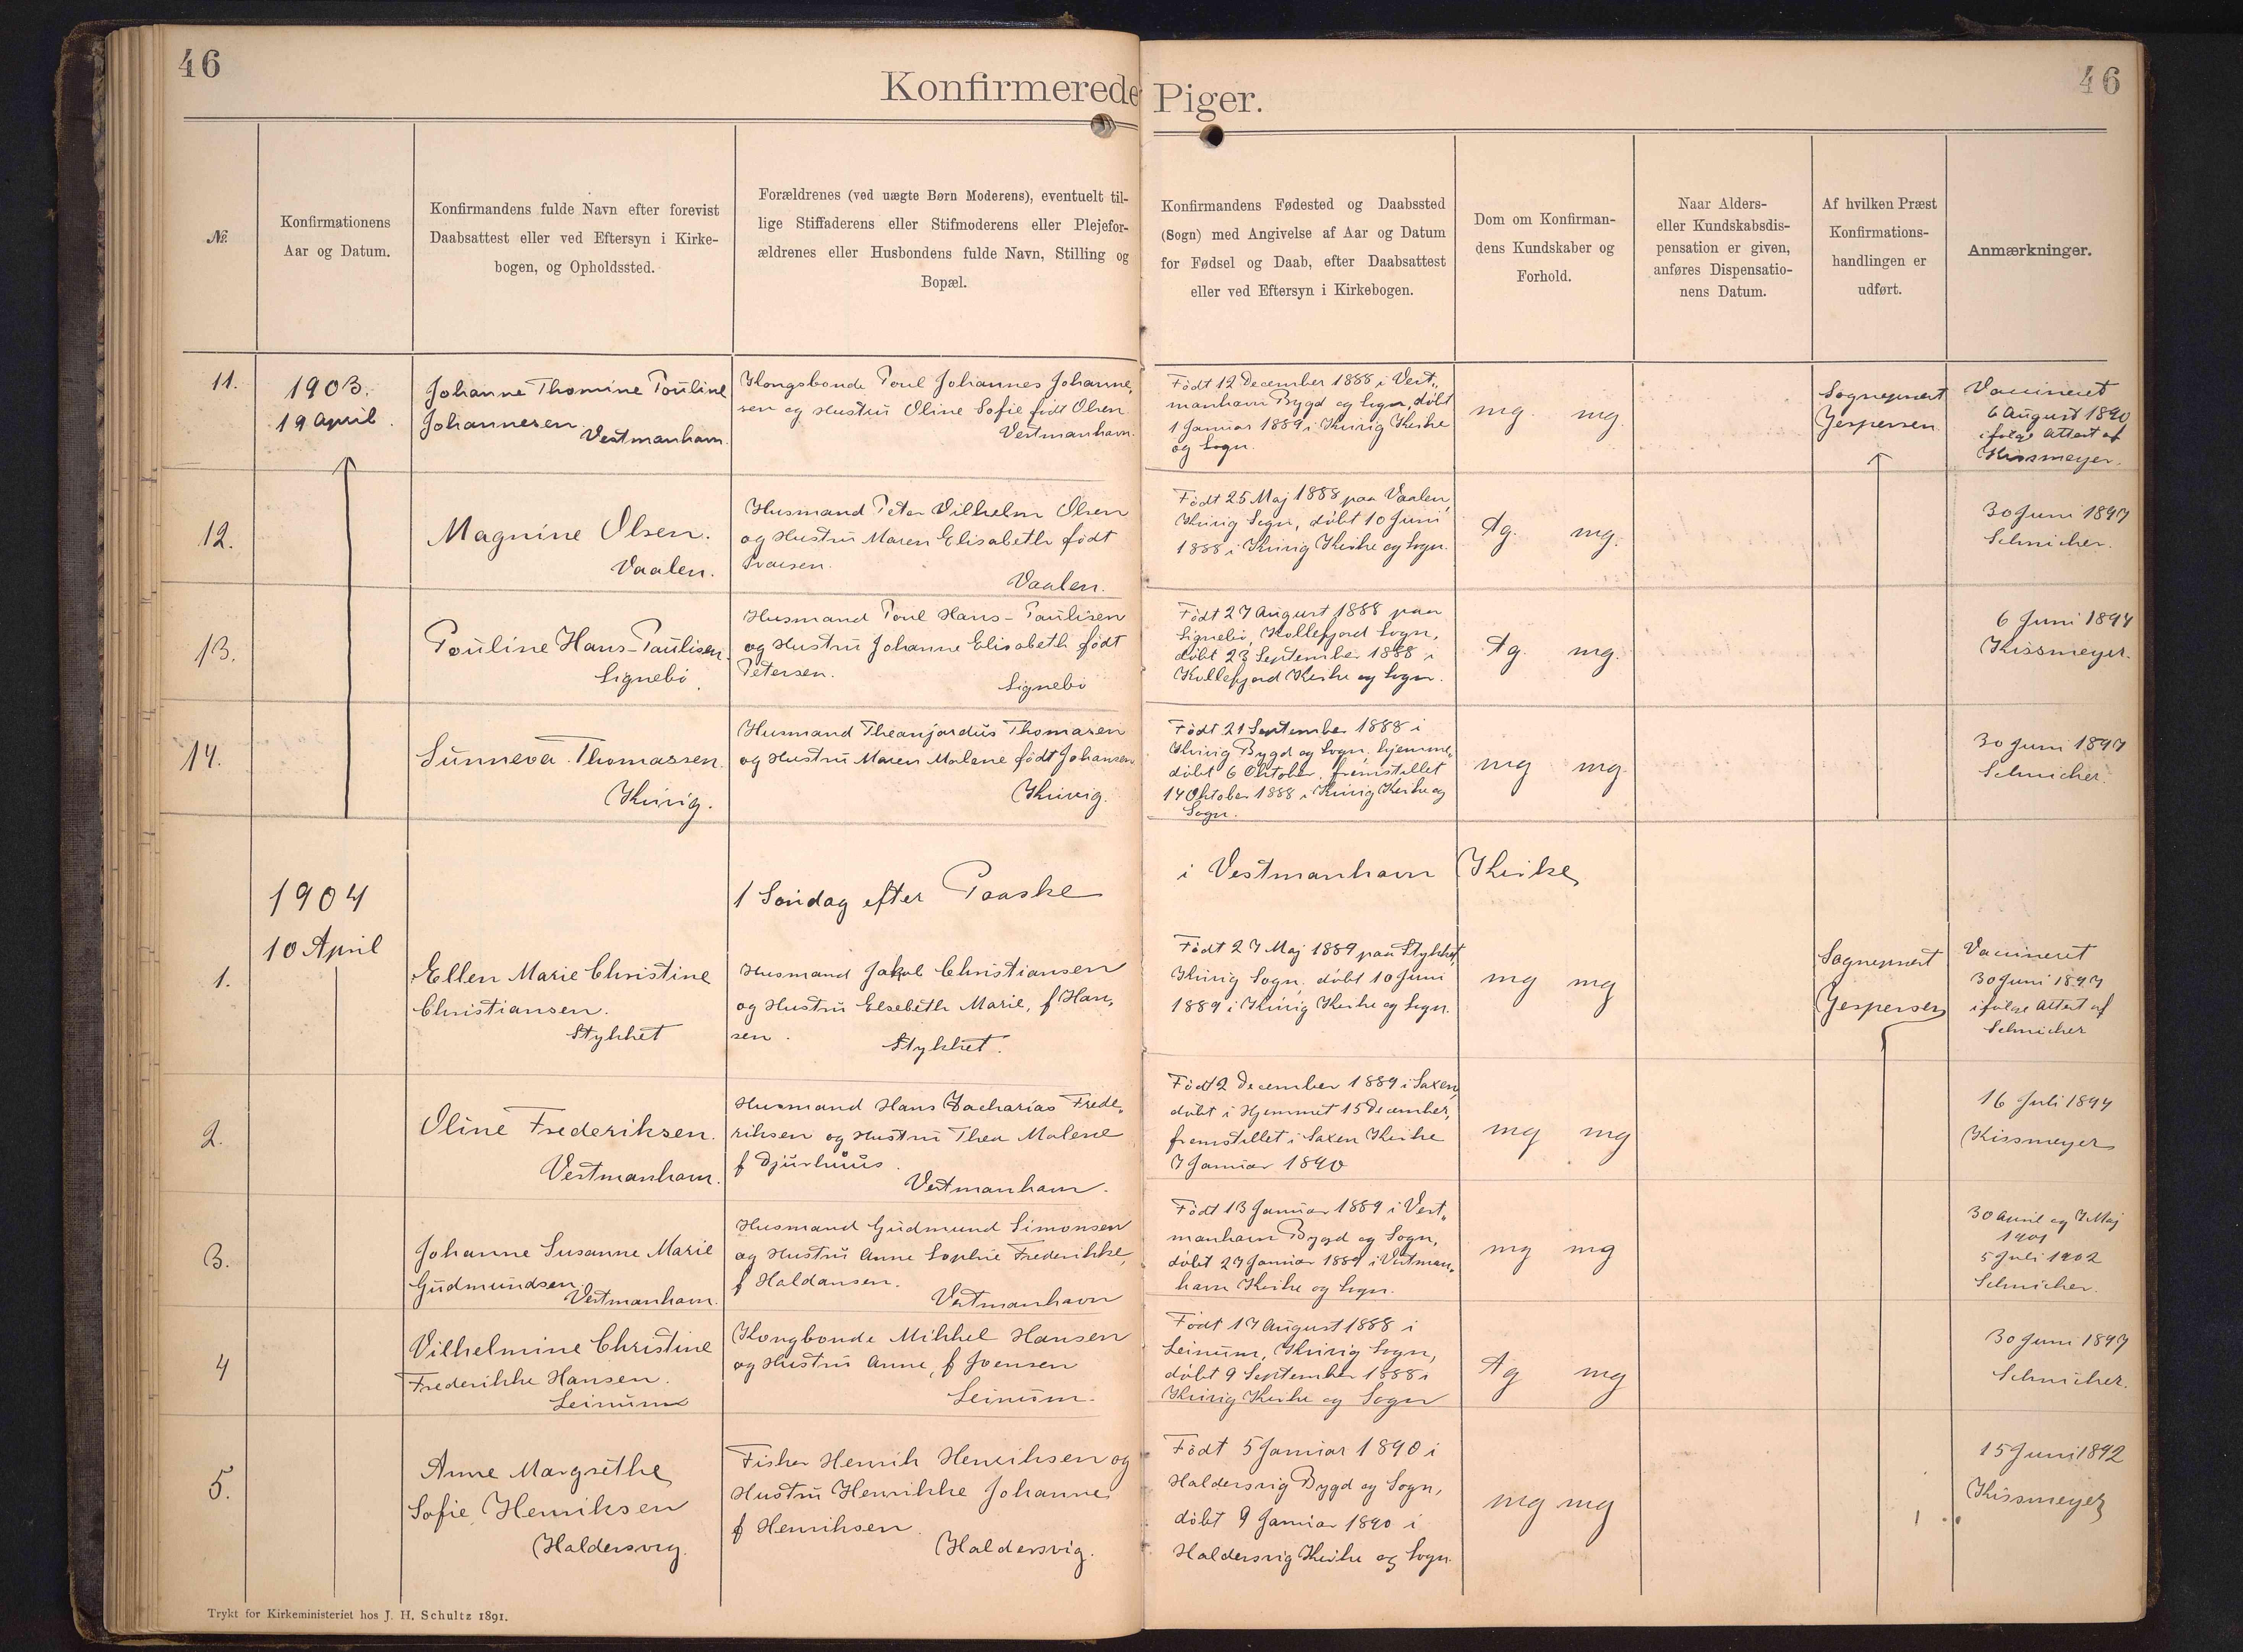 46
46
Konfirmerede Piger.
№
Konfirmationens
Aar og Datum.
Konfirmandens fulde Navn efter forevist
Daabsattest eller ved Eftersyn i Kirke-
bogen, og Opholdssted.
Forældrenes (ved uægte Børn Moderens), eventuelt til-
lige Stiffaderens eller Stifmoderens eller Plejefor-
ældrenes eller Husbondens fulde Navn, Stilling og
Bopæl.
Konfirmandens Fødested og Daabssted
(Sogn) med Angivelse af Aar og Datum
for Fødsel og Daab, efter Daabsattest
eller ved Eftersyn i Kirkebogen.
Dom om Konfirman-
dens Kundskaber og
Forhold.
Naar Alders-
eller Kundskabsdis-
pensation er given,
anføres Dispensatio-
nens Datum.
Af hvilken Præst
Konfirmations-
handlingen er
udført.
Anmærkninger.
11.
1903.
19 April.
Johanne Thomine Pouline
Johannesen.
Vestmanhavn.
Kongsbonde Poul Johannes Johanne,
sen og Hustru Oline Sofie født Olsen
Vestmanhavn.
Født 12 December 1888 i Vest„
manhavn Bygd og Sogn, døbt
1 Januar 1889 i Kvivig Kirke
og Sogn.
mg. mg.
Sognepræst
Jespersen.
Vaccineret
6 August 1890
ifølge Attest af
Kissmeyer.
12.
Magnine Olsen.
Vaalen.
Husmand Peter Vilhelm Olsen
og Hustru Maren Elisabeth født
Ivarsen.
Vaalen.
Født 25 Maj 1888 paa Vaalen,
Kvivig Sogn, døbt 10 Juni
1888 i Kvivig Kirke og Sogn.
tg. mg.
30 Juni 1897
Schnicher.
13.
Pouline Hans-Paulisen.
Signebø.
Husmand Poul Hans-Paulisen
og Hustru Johanne Elisabeth født
Petersen.
Signebø
Født 27 August 1888 paa
Signebø, Kollefjord Sogn,
døbt 23 September 1888 i
Kollefjord Kirke og Sogn.
tg. mg.
6 Juni 1894
Kissmeyer.
14.
Sunneva Thomassen.
Kvivig.
Husmand Theanjardus Thomasen
og Hustru Maren Malene født Johansen.
Kvivig.
Født 21 September 1888 i
Kvivig Bygd og Sogn, hjemme„
døbt 6 Oktober, fremstillet
14 Oktober 1888 i Kvivig Kirke og
Sogn.
mg mg.
30 Juni 1897
Schnicher.
1904
1 Søndag efter Paaske
i Vestmanhavn Kirke
10 April
1.
Ellen Marie Christine
Christiansen.
Stykket
Husmand Jakob Christiansen
og Hustru Elsebeth Marie, f Han,
sen.
Stykket.
Født 27 Maj 1889 paa Stykket,
Kvivig Sogn, døbt 10 Juni
1889 i Kvivig Kirke og Sogn.
mg mg
Sognepræst
Jespersen
Vaccineret
30 Juni 1897
ifølge Attest af
Schnicher
2.
Oline Frederiksen.
Vestmanhavn.
Husmand Hans Zacharias Frede„
riksen og Hustru Thea Malene
f Djurhuus.
Vestmanhavn.
Født 2 December 1889 i Saxen,
døbt i Hjemmet 15 December,
fremstillet i Saxen Kirke
7 Januar 1890
mg mg
16 Juli 1894
Kissmeyer
3.
Johanne Susanne Marie
Gudmundsen.
Vestmanhavn.
Husmand Gudmund Simonsen
og Hustru Anne Sophie Frederikke,
f Haldansen.
Vestmanhavn
Født 13 Januar 1889 i Vest„
manhavn Bygd og Sogn,
døbt 27 Januar 1889 i Vestman„
havn Kirke og Sogn.
mg mg
30 April og 7 Maj
1901
5 Juli 1902
Schnicher.
4
Vilhelmine Christine
Frederikke Hansen.
Leinum
Kongbonde Mikkel Hansen
og Hustru Anne, f Joensen
Leinum.
Født 17 August 1888 i
Leinum, Kvivig Sogn,
døbt 9 September 1888 i
Kvivig Kirke og Sogn
tg mg
30 Juni 1897
Schnicher.
5.
Anne Margrethe
Sofie Henriksen
Haldersvig.
Fisker Henrik Henriksen og
Hustru Henrikke Johanne
f Henriksen.
Haldersvig.
Født 5 Januar 1890 i
Haldersvig Bygd og Sogn,
døbt 9 Januar 1890 i
Haldersvig Kirke og Sogn.
mg mg
15 Juni 1892
Kissmeyer
Trykt for Kirkeministeriet hos J. H. Schultz 1891.